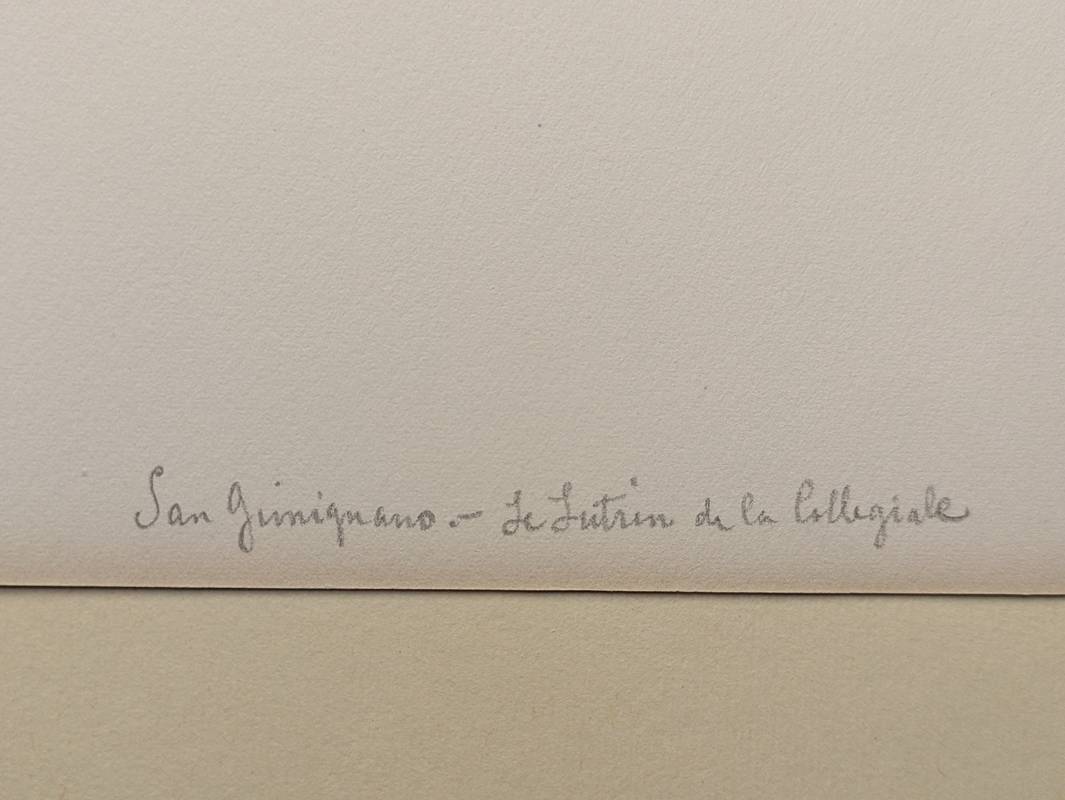 San Gimignano. - Le Lutrin de la Collegiale